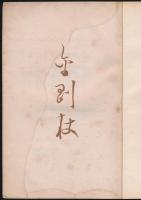 金剛杖